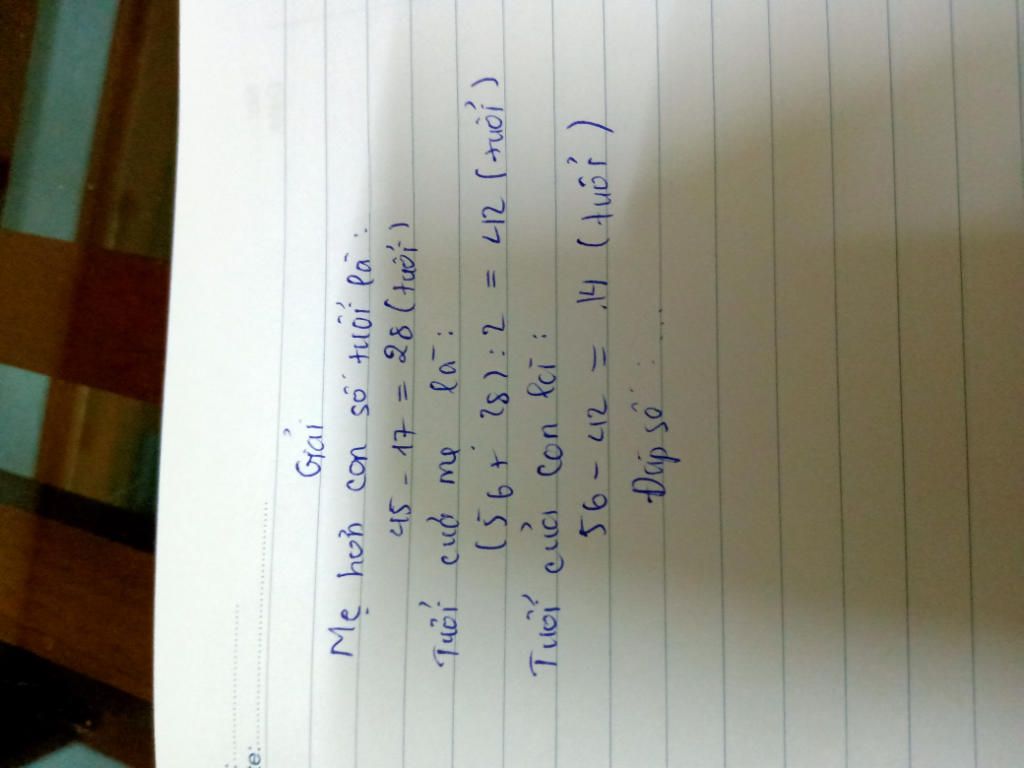 Giải
Mẹ hơn con số tuổi là :
45 - 17 = 28 (tuổi)
Tuổi của mẹ là :
(56 + 28) : 2 = 42 (tuổi)
Tuổi của con là :
56 - 42 = 14 (tuổi)
Đáp số : ...